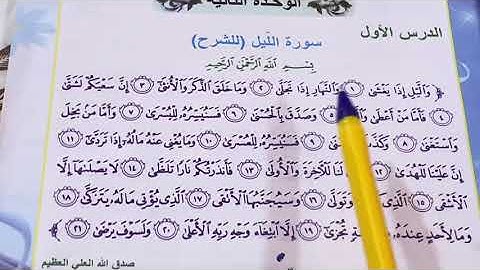 الوحدة الثانية
الدرس الأول
سورة الليل (للشرح)
بِسْمِ اللَّهِ الرَّحْمَٰنِ الرَّحِيمِ
وَالَّيْلِ إِذَا يَغْشَىٰ ١ وَالنَّهَارِ إِذَا تَجَلَّىٰ ٢ وَمَا خَلَقَ الذَّكَرَ وَالْأُنثَىٰ ٣ إِنَّ سَعْيَكُمْ لَشَتَّىٰ
٤ فَأَمَّا مَنْ أَعْطَىٰ ٥ وَصَدَّقَ بِالْحُسْنَىٰ ٦ فَسَنُيَسِّرُهُ لِلْيُسْرَىٰ ٧ وَأَمَّا مَن بَخِلَ
وَاسْتَغْنَىٰ ٨ وَكَذَّبَ ٩ فَسَنُيَسِّرُهُ لِلْعُسْرَىٰ ١٠ وَمَا يُغْنِي عَنْهُ مَالُهُ إِذَا تَرَدَّىٰ ١١
إِنَّ عَلَيْنَا لَلْهُدَىٰ ١٢ لَنَا لَلْآخِرَةَ وَالْأُولَىٰ ١٣ فَأَنذَرْتُكُمْ نَارًا تَلَظَّىٰ ١٤ لَا يَصْلَاهَا إِلَّا
الْأَشْقَى ١٥ وَتَوَلَّىٰ ١٦ وَسَيُجَنَّبُهَا الْأَتْقَى ١٧ الَّذِي يُؤْتِي مَالَهُ يَتَزَكَّىٰ ١٨
وَمَا لِأَحَدٍ عِندَهُ تُجْزَىٰ ١٩ إِلَّا ابْتِغَاءَ وَجْهِ رَبِّهِ الْأَعْلَىٰ ٢٠ وَلَسَوْفَ يَرْضَىٰ ٢١
صدق الله العلي العظيم